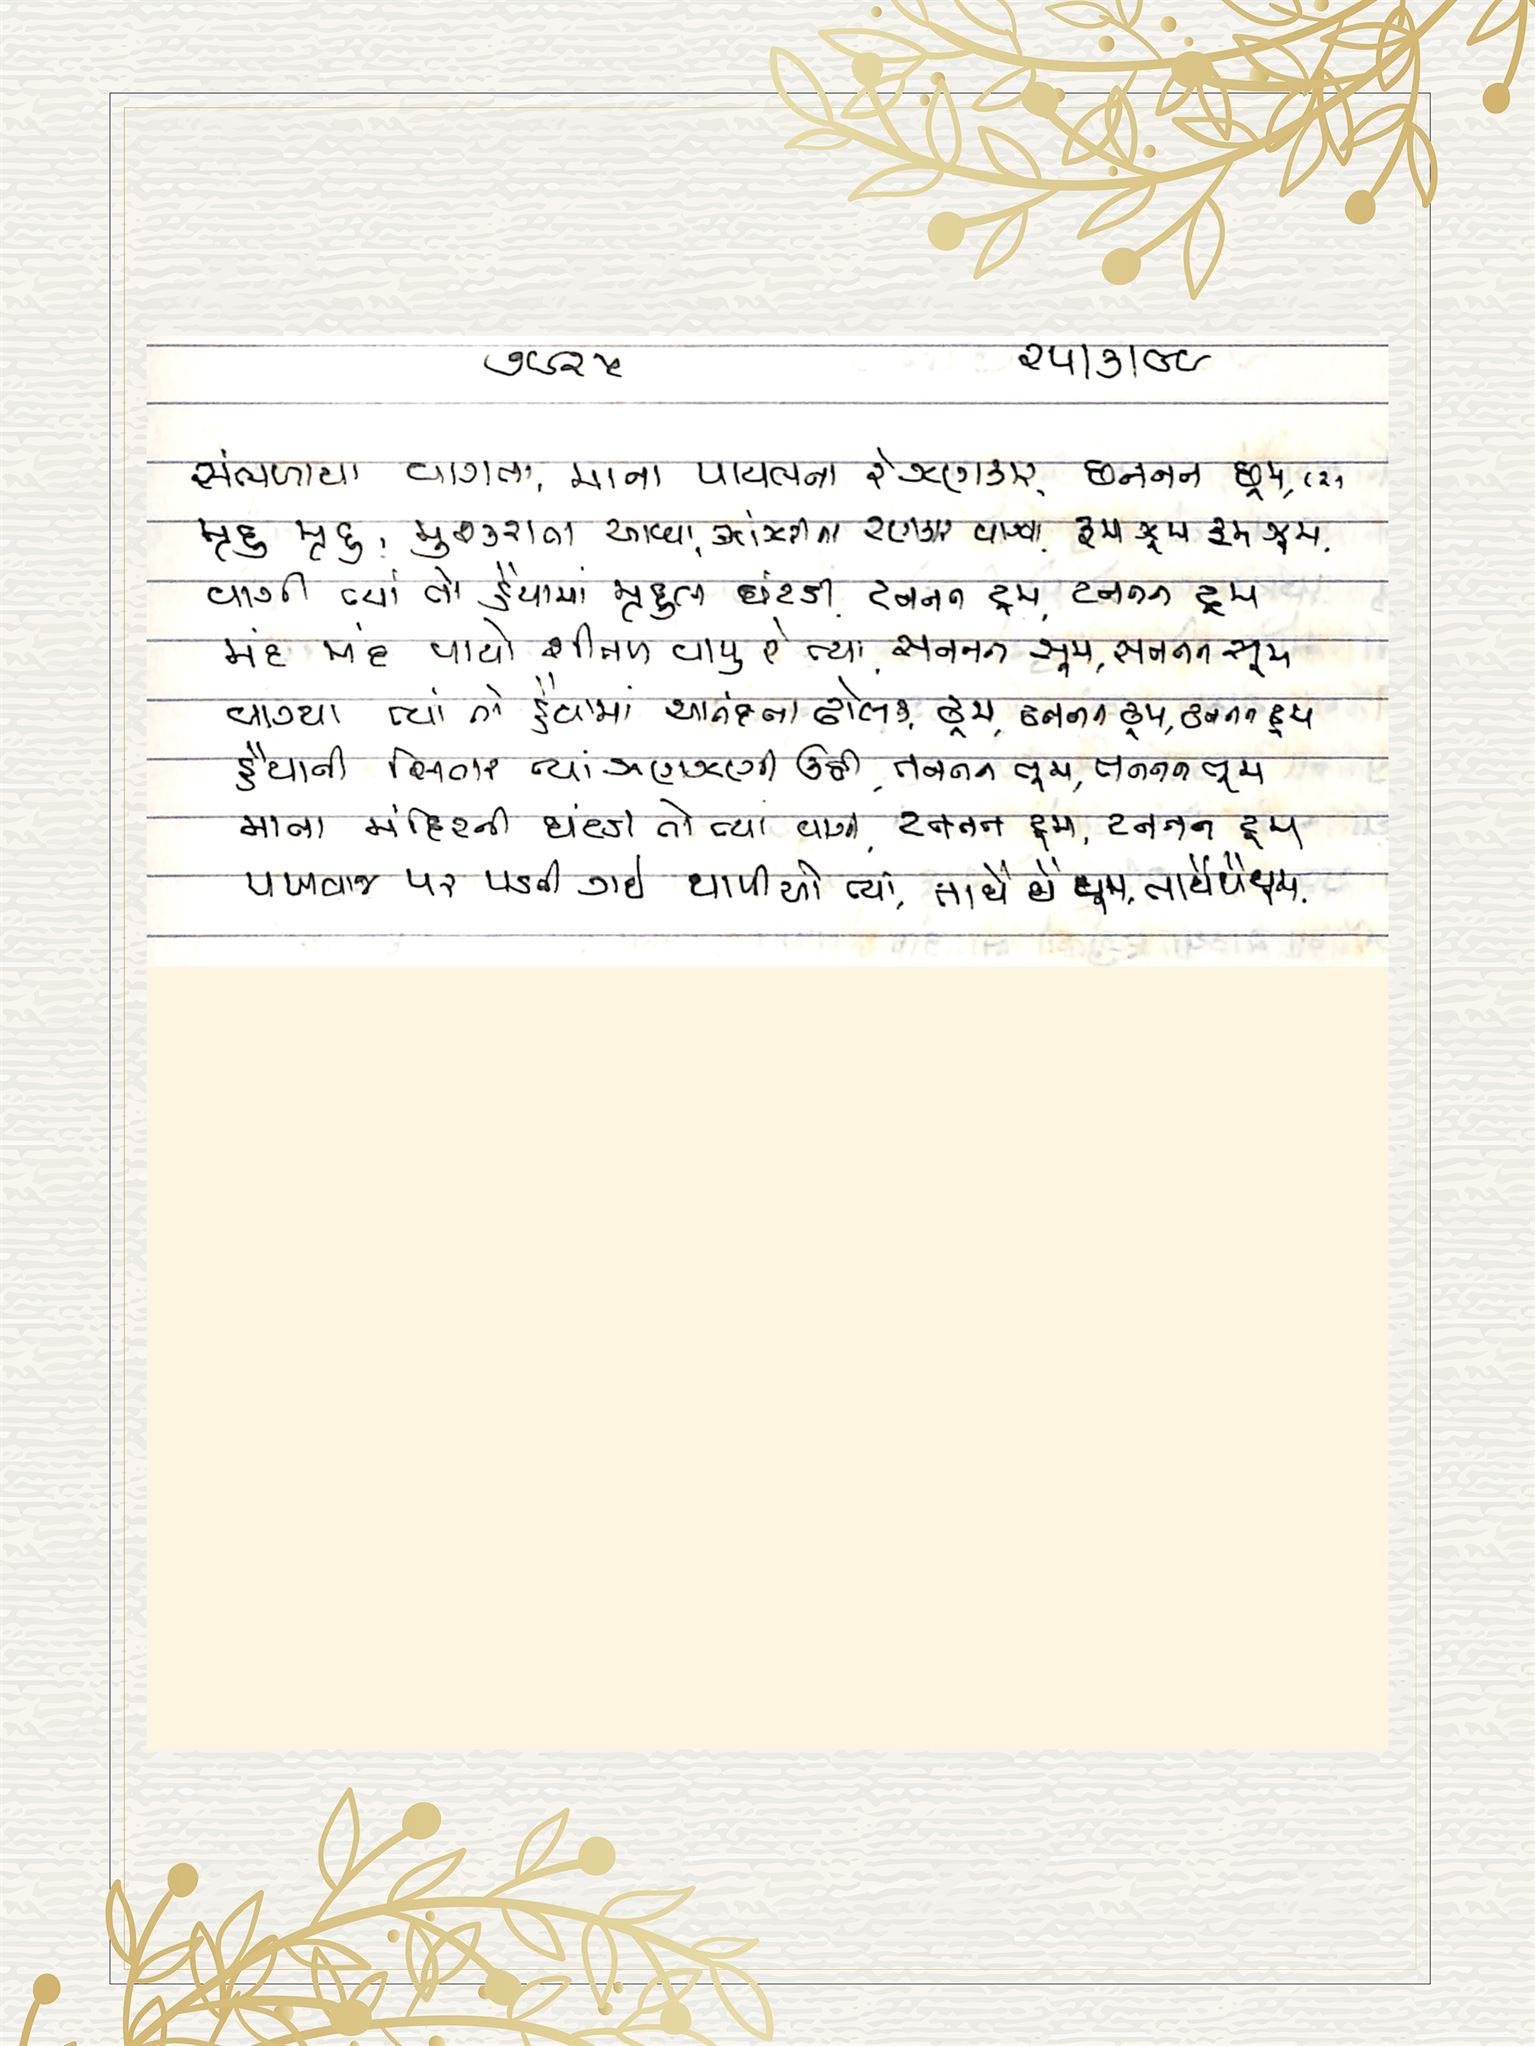 ૭૯૨૫ ૨૫/૩/૯૯
સંભળાયા વાગતા, માના પાયલના રે ઝણકાર, છનનન છૂમ, (૨)
મૃદુ મૃદુ, મુશ્કુરાતા આવ્યા, ઝાંઝરીના રણકાર વાગ્યા, રૂમ ઝૂમ રૂમ ઝૂમ.
વાગી ત્યાં તો હૈયામાં મૃદુલ ઘંટડી, ટનનન ટૂમ, ટનનન ટૂમ
મંદ મંદ વાયો શીતળ વાયુ રે ત્યાં, સનનન સૂમ, સનનન સૂમ
વાગ્યા ત્યાં તો હૈયામાં આનંદના ઢોલક, ઢૂમ, ઢનનન ઢૂમ, ઢનનન ઢૂમ
હૈયાની સિતાર ત્યાં ઝણઝણી ઉઠી, તનનન તૂમ, તનનન તૂમ
માના મંદિરની ઘંટડી તો ત્યાં વાગી, ટનનન ટૂમ, ટનનન ટૂમ
પખવાજ પર પડતી ગઈ થાપીઓ ત્યાં, તાથૈ થૈ થૂમ, તાથૈ થૈ થૂમ.